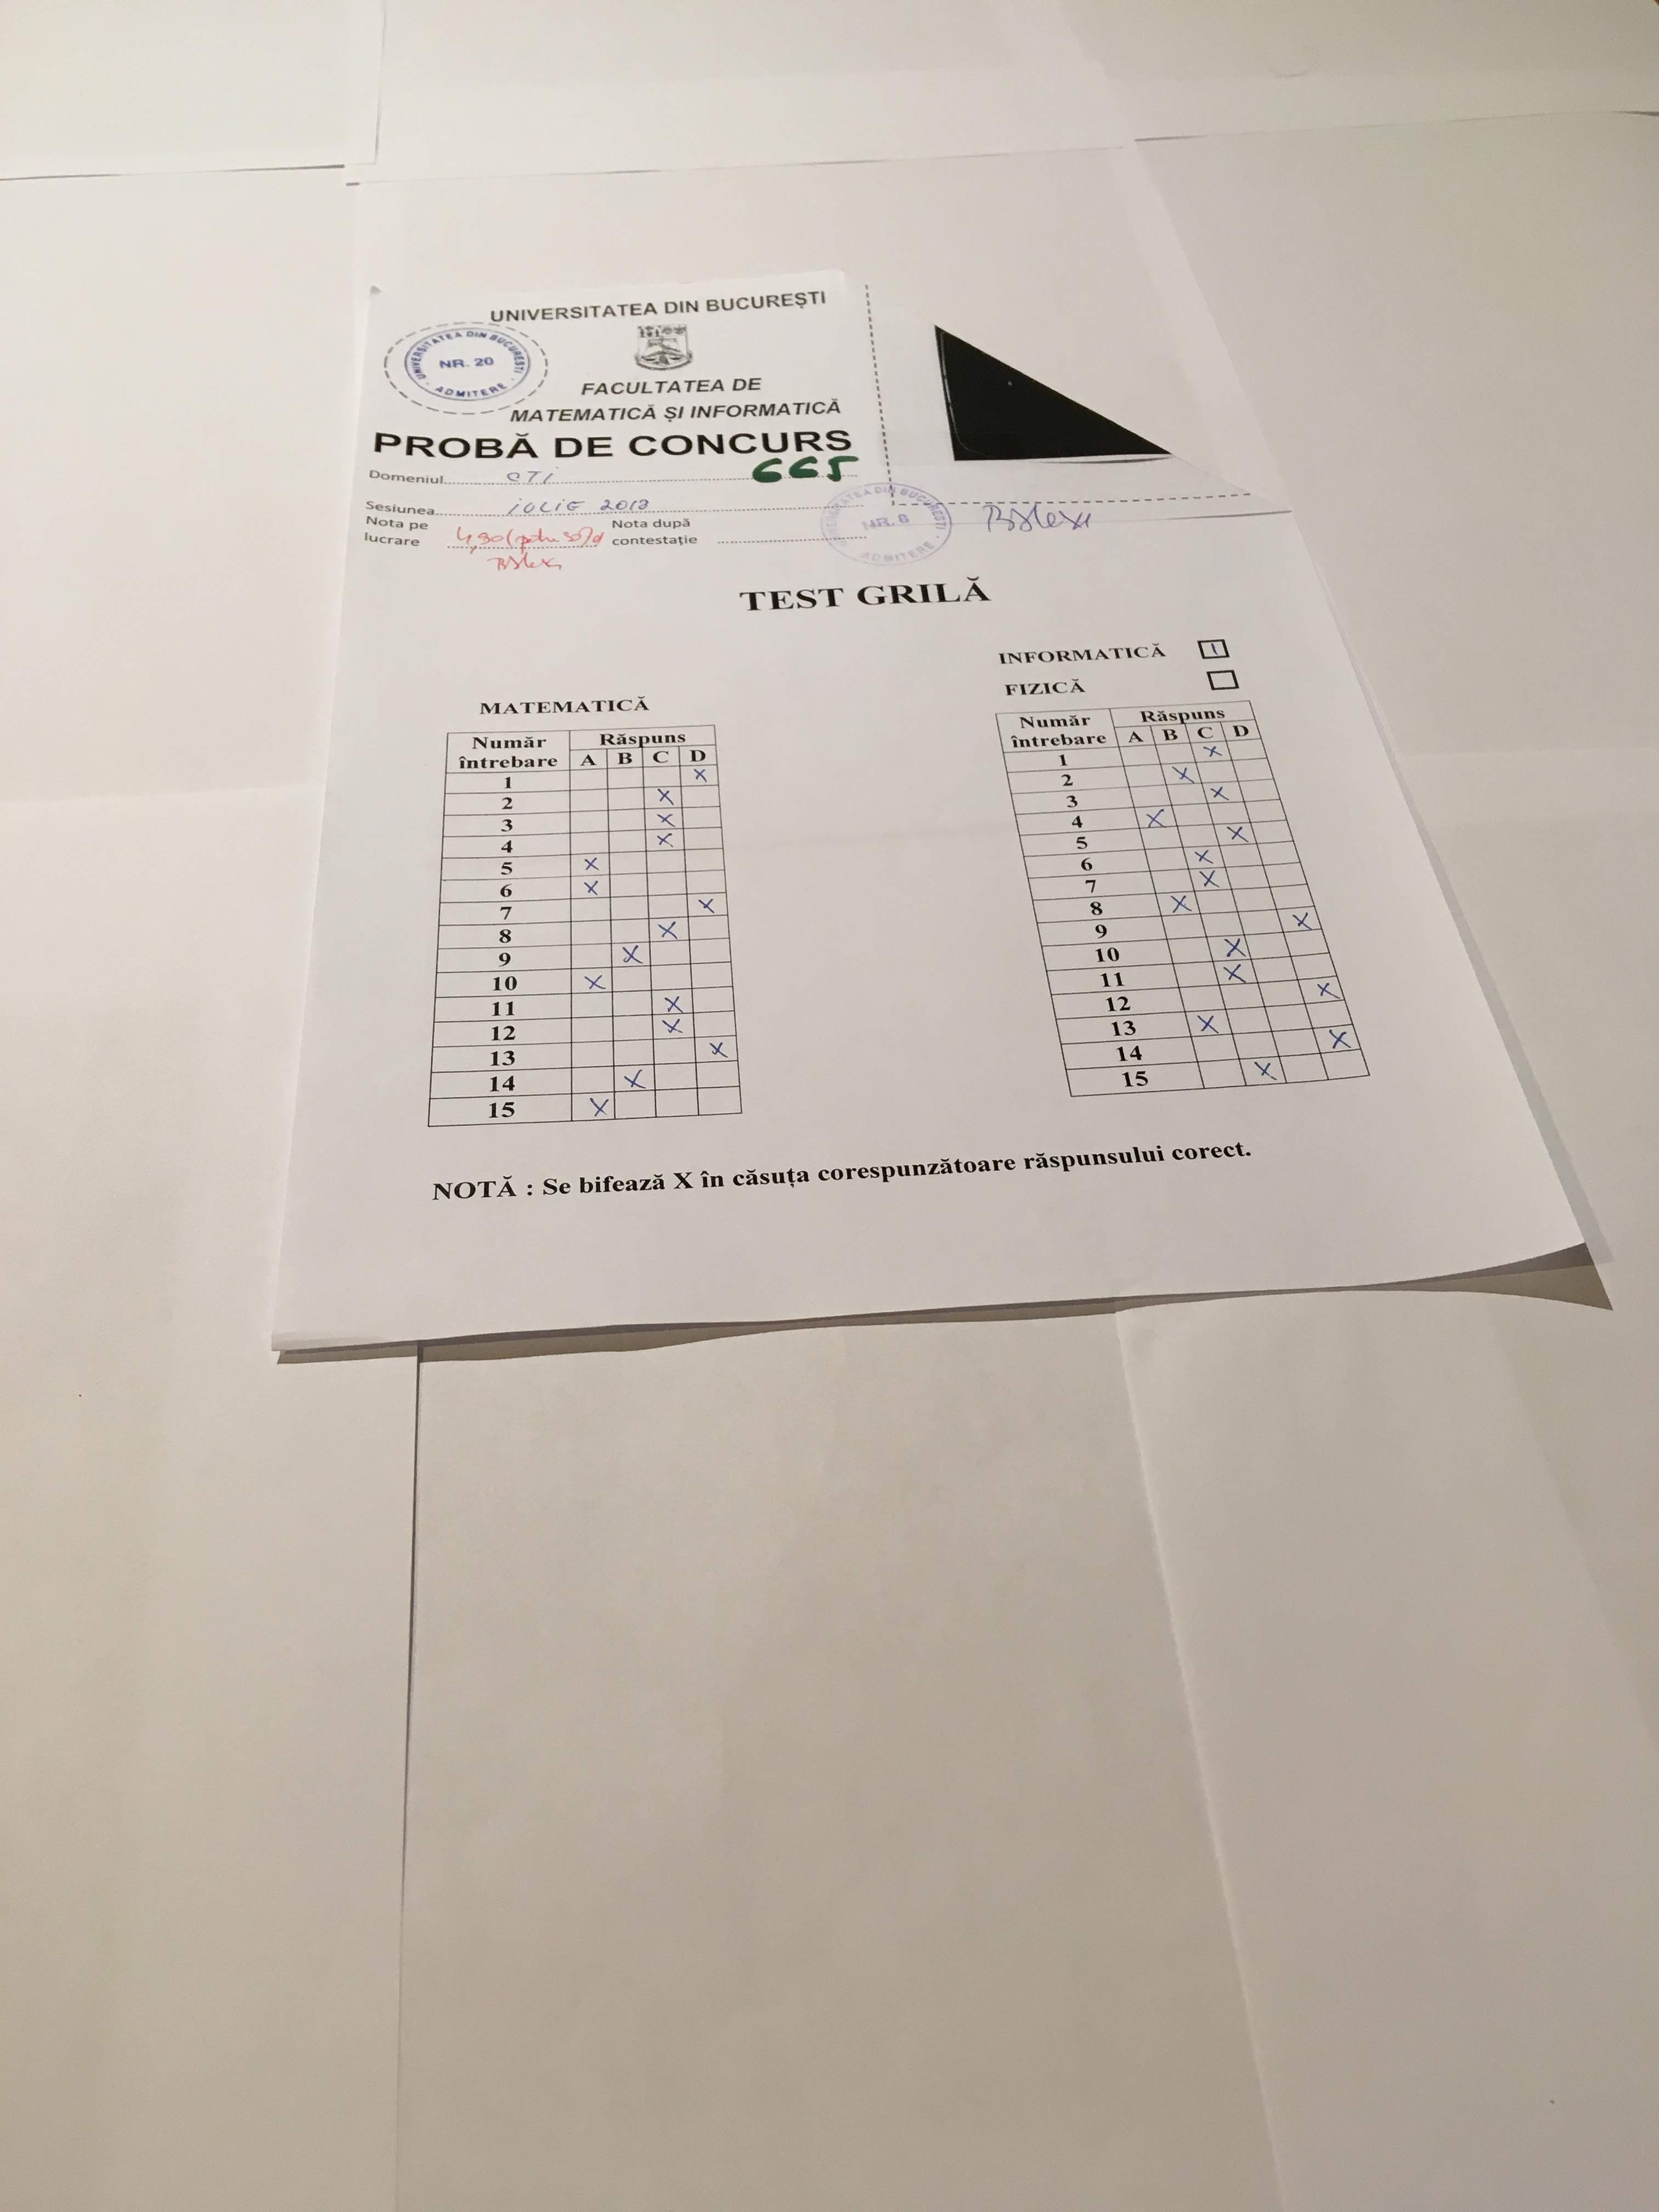 UNIVERSITATEA DIN BUCUREȘTI
UNIVERSITATEA DIN BUCUREȘTI
NR. 20
ADMITERE
FACULTATEA DE
MATEMATICĂ ȘI INFORMATICĂ
PROBĂ DE CONCURS
665
Domeniul CTI
Sesiunea iULiE 2018
Nota pe lucrare 4,30
Nota după contestație
UNIVERSITATEA DIN BUCUREȘTI
NR. 8
ADMITERE
TEST GRILĂ
INFORMATICĂ 1
FIZICĂ
MATEMATICĂ
Număr întrebare Răspuns
A B C D
1 X
2 X
3 X
4 X
5 X
6 X
7 X
8 X
9 X
10 X
11 X
12 X
13 X
14 X
15 X
Număr întrebare Răspuns
A B C D
1 X
2 X
3 X
4 X
5 X
6 X
7 X
8 X
9 X
10 X
11 X
12 X
13 X
14 X
15 X
NOTĂ : Se bifează X în căsuța corespunzătoare răspunsului corect.